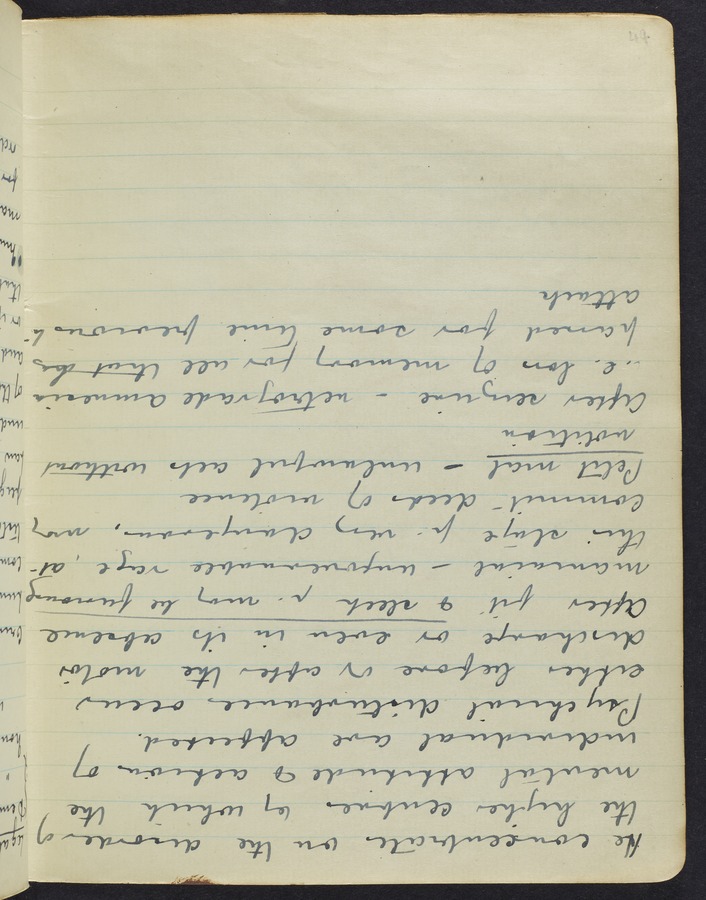 He concentrates on the disorder of
the higher centres by which the
mental attitude & action of
individual are affected.
Psychical disturbances occur
either before or after the motor
discharge or even in its absence
After fit & sleep p. may be furiously
maniacal - ungovernable rage, at
this stage p. very dangerous, may
commit deeds of violence
Petit mal - unlawful acts without
volition
After seizure - retrograde amnesia
i.e. loss of memory for all that has
passed for some time previous to
attack
44